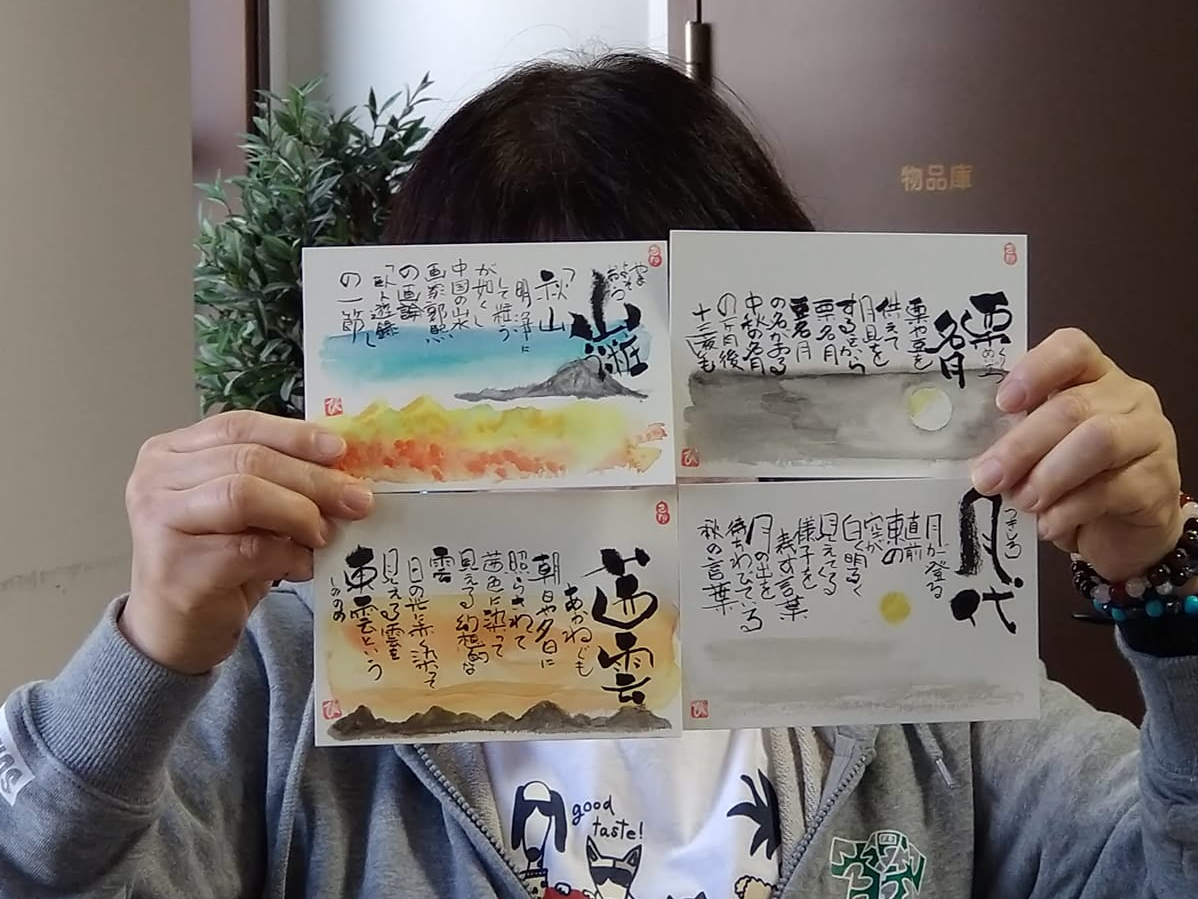 物品庫
山粧う
やまよそおう
「秋山
明浄に
して粧う
が如し」
中国の山水
画家郭熙
の画論
「臥遊録」
の一節
栗名月
くりめいげつ
栗や豆を
供えて
月見を
するから
栗名月
豆名月
の名がある
中秋の名月
の一ヶ月後
十三夜も
茜雲
あかねぐも
朝日や夕日に
照らされて
茜色に染って
見える幻想的な
雲
日の光に赤く染って
見える雲を
東雲という
しののめ
月代
つきしろ
月が登る
直前
東の
空が
白く明るく
見えてくる
様子を
表す言葉
月の出を
待ちわびている
秋の言葉
good
taste!